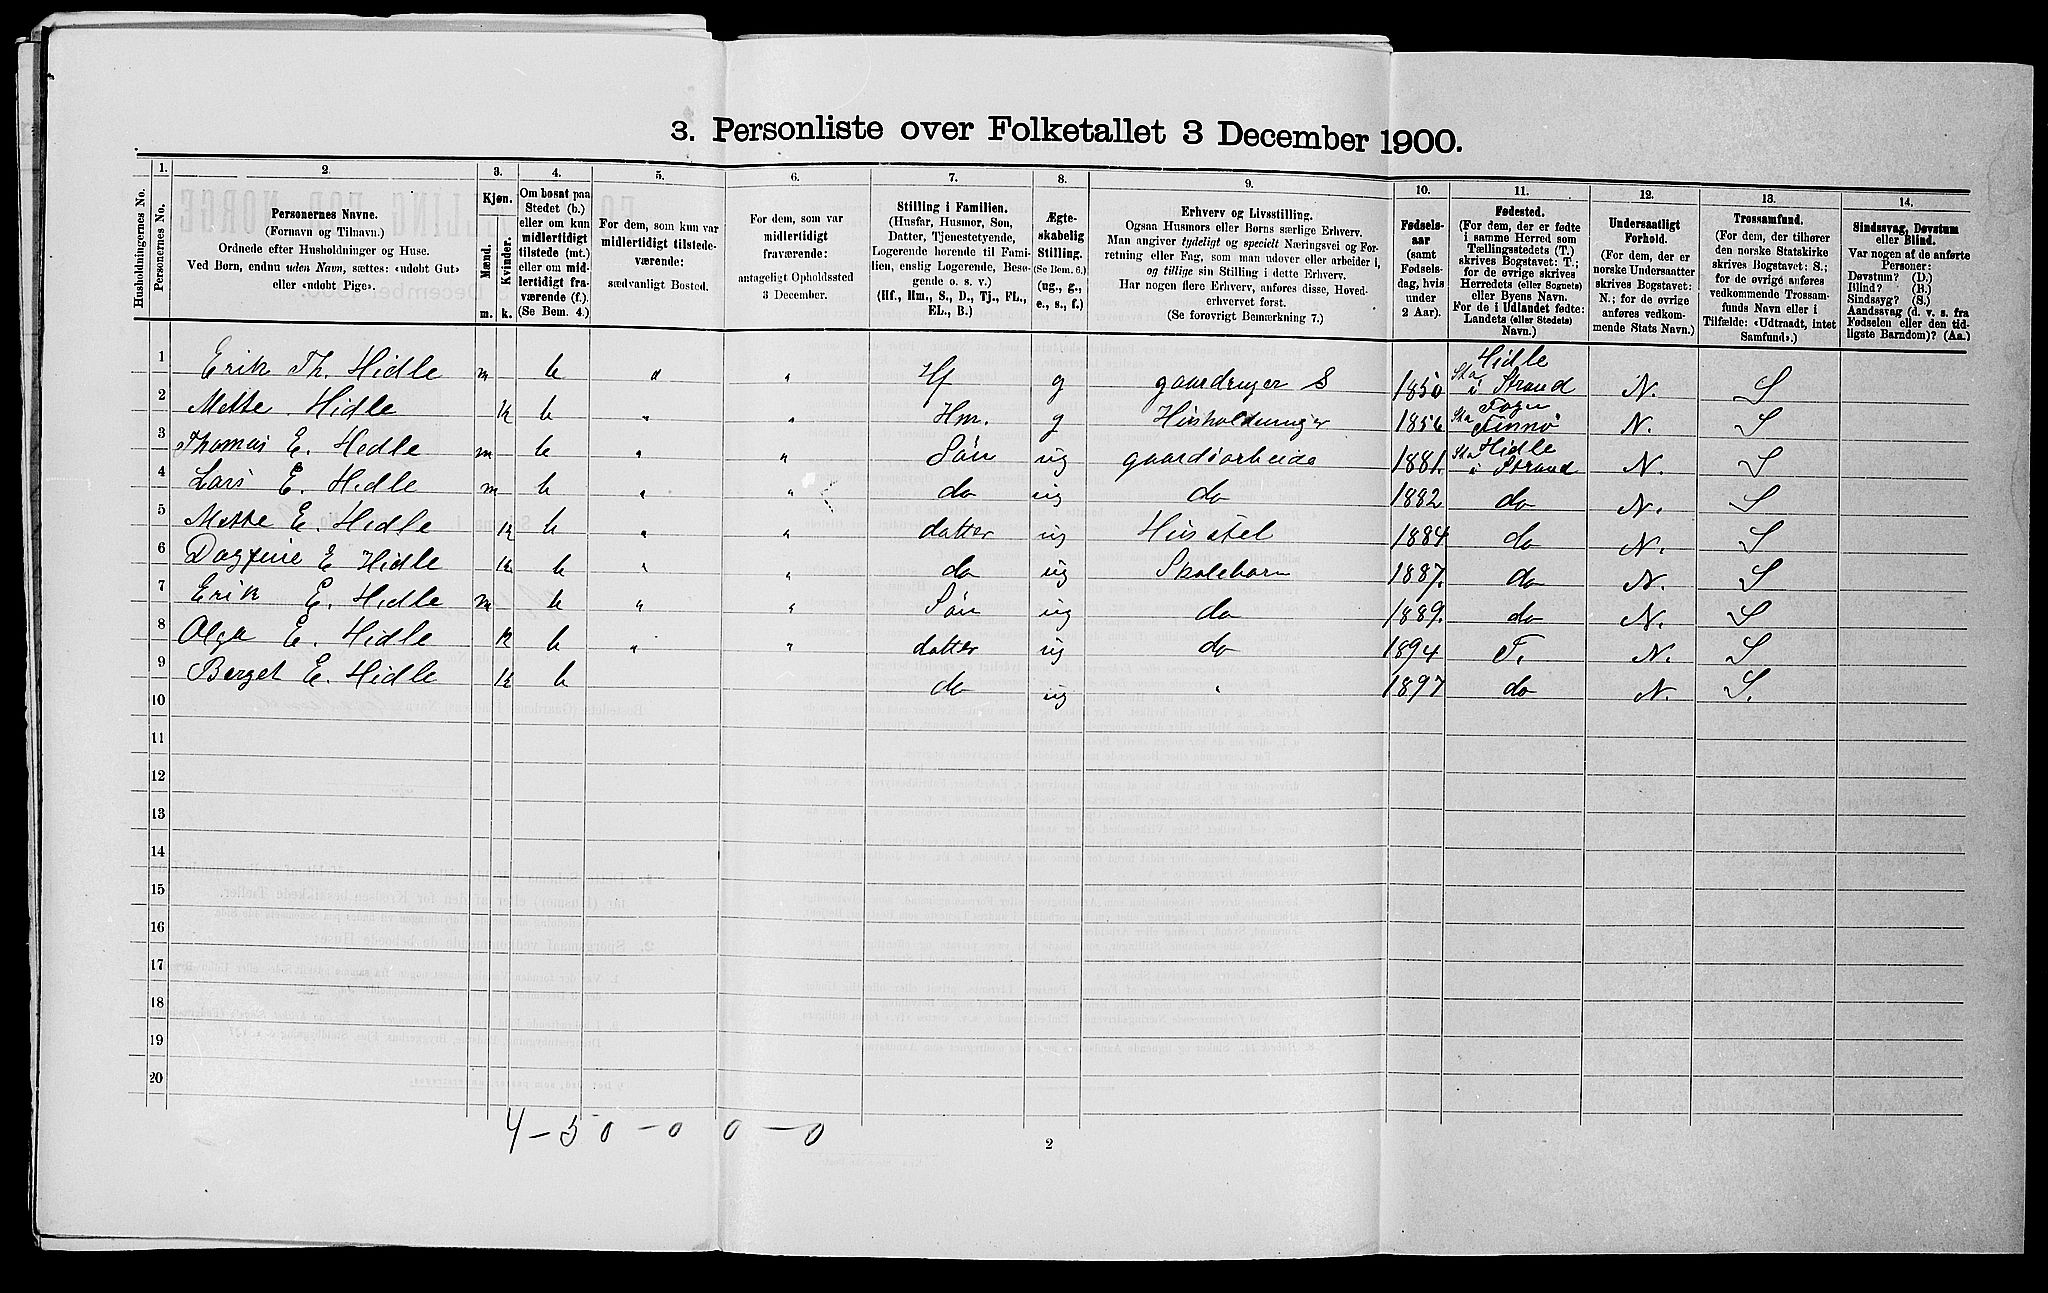 3. Personliste over Folketallet 3 December 1900.
Husholdningernes No.
1.
Personernes No.
2.
Personernes Navne.
(Fornavn og Tilnavn.)
Ordnede efter Husholdninger og Huse.
Ved Børn, endnu uden Navn, sættes: «udøbt Gut»
eller «udøbt Pige».
3.
Kjøn.
Mænd.
Kvinder.
m.
k.
4.
Om bosat paa
Stedet (b.)
eller om kun
midlertidigt
tilstede (mt.)
eller om mid-
lertidigt fra-
værende (f.)
(Se Bem. 4.)
5.
For dem, som kun var
midlertidigt tilstede-
værende:
sædvanligt Bosted.
6.
For dem, som var
midlertidigt
fraværende:
antageligt Opholdssted
3 December.
7.
Stilling i Familien.
(Husfar, Husmor, Søn,
Datter, Tjenestetyende,
Logerende hørende til Fami-
lien, enslig Logerende, Besø-
gende o. s. v.)
(Hf., Hm., S., D., Tj., FL.,
EL., B.)
8.
Ægte-
skabelig
Stilling.
(Se Bem. 6.)
(ug., g.,
e., s., f.)
9.
Erhverv og Livsstilling.
Ogsaa Husmors eller Børns særlige Erhverv.
Man angiver tydeligt og specielt Næringsvei og For-
retning eller Fag, som man udover eller arbeider i,
og tillige sin Stilling i dette Erhverv.
Har nogen flere Erhverv, anføres disse, Hoved-
erhvervet først.
(Se forøvrigt Bemærkning 7.)
10.
Fødsels-
aar
(samt
Fødsels-
dag, hvis
under
2 Aar).
11.
Fødested.
(For dem, der er fødte
i samme Herred som
Tællingsstedets (T.)
skrives Bogstavet: T.;
for de øvrige skrives
Herredets (eller Sognets)
eller Byens Navn.
For de i Udlandet fødte:
Landets (eller Stedets)
Navn.)
12.
Undersaatligt
Forhold.
(For dem, der er
norske Undersaatter
skrives Bogstavet:
N.; for de øvrige
anføres vedkom-
mende Stats Navn.)
13.
Trossamfund.
(For dem, der tilhører
den norske Statskirke
skrives Bogstavet: S.;
for de øvrige anføres
vedkommende Trossam-
funds Navn eller i
Tilfælde: «Udtraadt, intet
Samfund».)
14.
Sindssvag, Døvstum
eller Blind.
Var nogen af de anførte
Personer:
Døvstum? (D.)
Blind? (B.)
Sindssyg? (S.)
Aandssvag (d. v. s. fra
Fødselen eller den tid-
ligste Barndom)? (Aa.)
1 Erik Th. Hidle m b " " Hf g gaardruger S 1850 Hidle i Strand N. S
2 Mette Hidle k b " " Hm. g Husholdninger 1856 Fogn Finnø N. S
3 Thomas E. Hidle m b " " Søn ug gaardsarbeide 1881. Hidle i Strand N. S
4 Lars E. Hidle m b " " do ug do 1882 do N. S
5 Mette E. Hidle k b " " datter ug Husstel 1884 do N. S
6 Dagfine E Hidle k b " " do ug Skolebarn 1887. do N. S
7 Erik E. Hidle m b " " Søn ug do 1889. do N. S
8 Olga E. Hidle k b " " datter ug do 1894 T. N. S
9 Berget E. Hidle k b do ug " 1897 do N S.
10
11
12
13
14
15
16
17
18
19
20
4 - 5 0 - 0 0 - 0
2